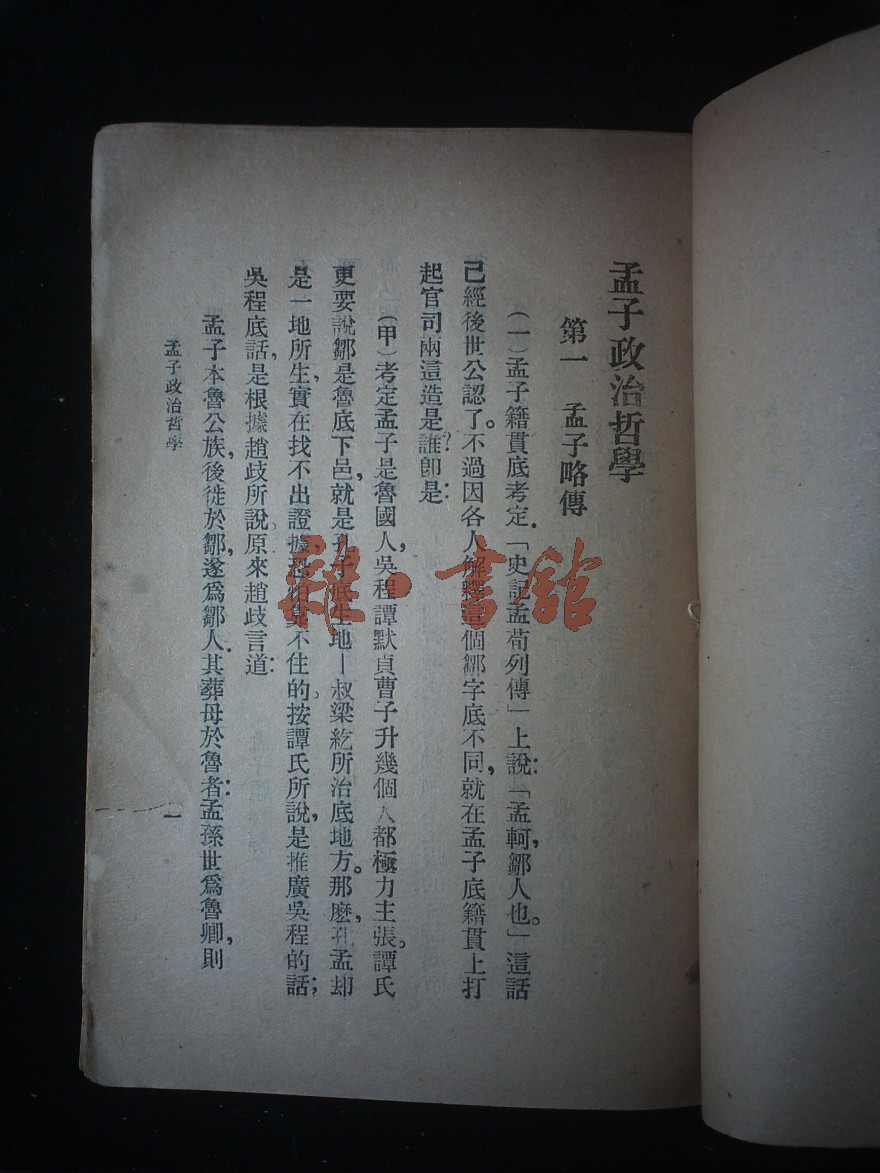 孟子政治哲學
第一　孟子略傳
(一)孟子籍貫底考定.「史記孟荀列傳」上說:「孟軻,鄒人也。」這話
已經後世公認了。不過因各人解釋這個鄒字底不同,就在孟子底籍貫上打
起官司兩這造是誰?卽是:
(甲)考定孟子是魯國人,吳程譚默貞曹子升幾個人都極力主張。譚氏
更要說鄒是魯底下邑,就是孔子底生地—叔梁紇所治底地方。那麽,孔孟却
是一地所生,實在找不出證據,恐怕靠不住的。按譚氏所說,是推廣吳程的話;
吳程底話,是根據趙歧所說。原來趙歧言道:
孟子本魯公族,後徙於鄒,遂爲鄒人.其葬母於魯者:孟孫世爲魯卿,則
孟子政治哲學
一
雜·書館